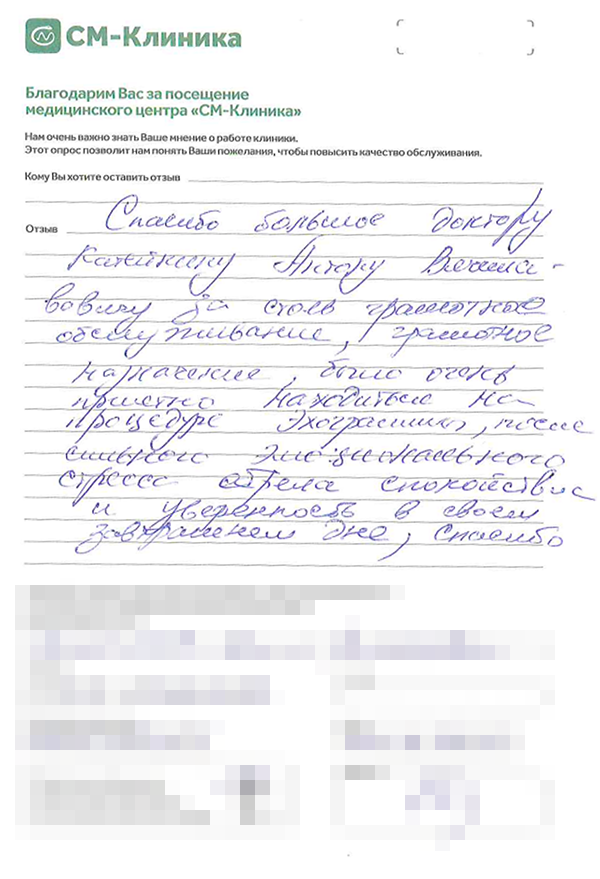 СМ-Клиника
Благодарим Вас за посещение
медицинского центра «СМ-Клиника»
Нам очень важно знать Ваше мнение о работе клиники.
Этот опрос позволит нам понять Ваши пожелания, чтобы повысить качество обслуживания.
Кому Вы хотите оставить отзыв
Отзыв Спасибо большое доктору
Антору
вовичу за столь грамотное
обслуживание, грамотное
назначение, было очень
приятно находиться на
процедуре после
сильного эмоционального
стресса обрела спокойствие
и уверенность в своем
завтрашнем дне, спасибо